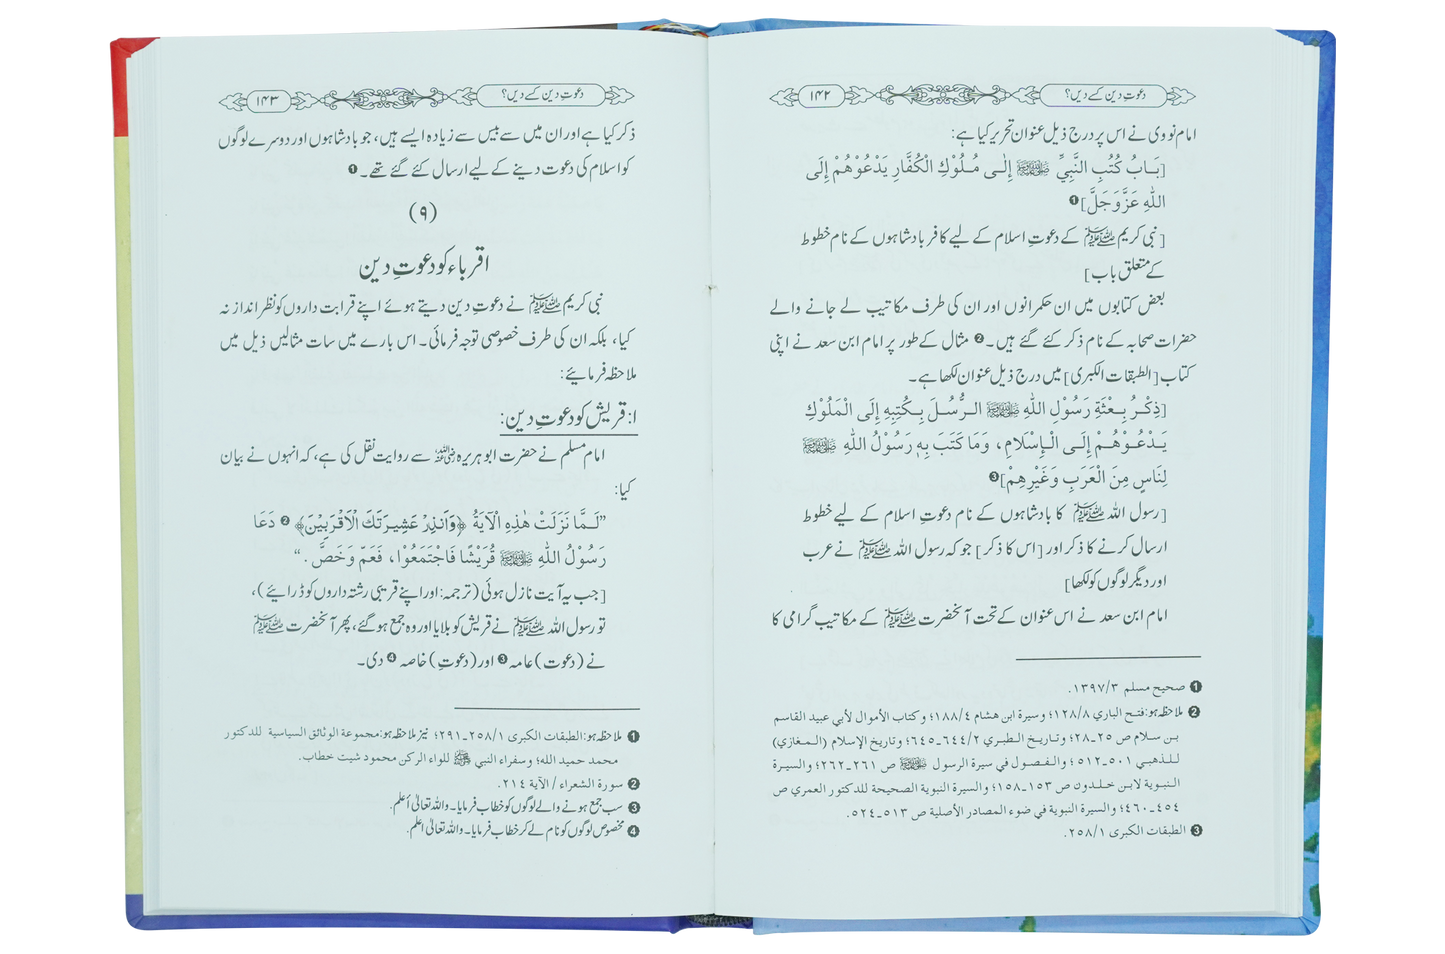 دعوتِ دین کسے دیں؟ ۱۴۲
امام نووی نے اس پر درج ذیل عنوان تحریر کیا ہے:
[بَابُ كُتُبِ النَّبِيِّ ﷺ إِلٰى مُلُوْكِ الْكُفَّارِ يَدْعُوْهُمْ إِلَى
اللّٰهِ عَزَّوَجَلَّ]❶
[نبی کریم ﷺ کے دعوتِ اسلام کے لیے کافر بادشاہوں کے نام خطوط
کے متعلق باب]
بعض کتابوں میں ان حکمرانوں اور ان کی طرف مکاتیب لے جانے والے
حضرات صحابہ کے نام ذکر کئے گئے ہیں۔❷ مثال کے طور پر امام ابن سعد نے اپنی
کتاب [الطبقات الکبری] میں درج ذیل عنوان لکھا ہے۔
[ذِكْرُ بِعْثَةِ رَسُوْلِ اللّٰهِ ﷺ الرُّسُلَ بِكُتِبِهِ إِلَى الْمَلُوْكِ
يَدْعُوْهُمْ إِلَى الْإِسْلَامِ، وَمَا كَتَبَ بِهِ رَسُوْلُ اللّٰهِ ﷺ
لِنَاسٍ مِنَ الْعَرَبِ وَغَيْرِهِمْ]❸
[رسول اللہ ﷺ کا بادشاہوں کے نام دعوتِ اسلام کے لیے خطوط
ارسال کرنے کا ذکر اور [اس کا ذکر] جو کہ رسول اللہ ﷺ نے عرب
اور دیگر لوگوں کو لکھا]
امام ابن سعد نے اس عنوان کے تحت آنحضرت ﷺ کے مکاتیب گرامی کا
❶ صحيح مسلم ۱۳۹۷/۳.
❷ ملاحظہ ہو: فتح الباري ۱۲۸/۸؛ وسيرة ابن هشام ۱۸۸/٤؛ وكتاب الأموال لأبي عبيد القاسم
بن سلام ص ۲۵۔۲۸؛ وتاريخ الطبري ٦٤٤/۲۔٦٤۵؛ وتاريخ الإسلام (المغازي)
للذهبي ۵۰۱۔۵۱۲؛ والفصول في سيرة الرسول ﷺ ص ۲٦۱۔۲٦۲؛ والسيرة
النبوية لابن خلدون ص ۱۵۳۔۱۵۸؛ والسيرة النبوية الصحيحة للدكتور العمري ص
٤۵٤۔٤٦۰؛ والسيرة النبوية في ضوء المصادر الأصلية ص ۵۱۳۔۵۲٤.
❸ الطبقات الكبرى ۲۵۸/۱.
دعوتِ دین کسے دیں؟ ۱۴۳
ذکر کیا ہے اور ان میں سے بیس سے زیادہ ایسے ہیں، جو بادشاہوں اور دوسرے لوگوں
کو اسلام کی دعوت دینے کے لیے ارسال کئے گئے تھے۔❶
(۹)
اقرباء کو دعوتِ دین
نبی کریم ﷺ نے دعوتِ دین دیتے ہوئے اپنے قرابت داروں کو نظر انداز نہ
کیا، بلکہ ان کی طرف خصوصی توجہ فرمائی۔ اس بارے میں سات مثالیں ذیل میں
ملاحظہ فرمائیے:
ا: قریش کو دعوتِ دین:
امام مسلم نے حضرت ابوہریرہ رضی اللہ عنہ سے روایت نقل کی ہے، کہ انہوں نے بیان
کیا:
”لَمَّا نَزَلَتْ هٰذِهِ الْآيَةُ ﴿وَأَنْذِرْ عَشِيرَتَكَ الْأَقْرَبِيْنَ﴾❷ دَعَا
رَسُوْلُ اللّٰهِ ﷺ قُرَيْشًا فَاجْتَمَعُوْا، فَعَمَّ وَخَصَّ.“
[جب یہ آیت نازل ہوئی (ترجمہ: اور اپنے قریبی رشتہ داروں کو ڈرائیے)،
تو رسول اللہ ﷺ نے قریش کو بلایا اور وہ جمع ہو گئے، پھر آنحضرت ﷺ
نے (دعوت) عامہ❸ اور (دعوتِ) خاصہ❹ دی۔
❶ ملاحظہ ہو: الطبقات الكبرى ۲۵۸/۱۔۲۹۱؛ نیز ملاحظہ ہو: مجموعة الوثائق السياسية للدكتور
محمد حميد الله؛ وسفراء النبي ﷺ للواء الركن محمود شيت خطاب.
❷ سورة الشعراء / الآية ۲۱٤.
❸ سب جمع ہونے والے لوگوں کو خطاب فرمایا۔ واللہ تعالیٰ أعلم.
❹ مخصوص لوگوں کو نام لے کر خطاب فرمایا۔ واللہ تعالیٰ اعلم.